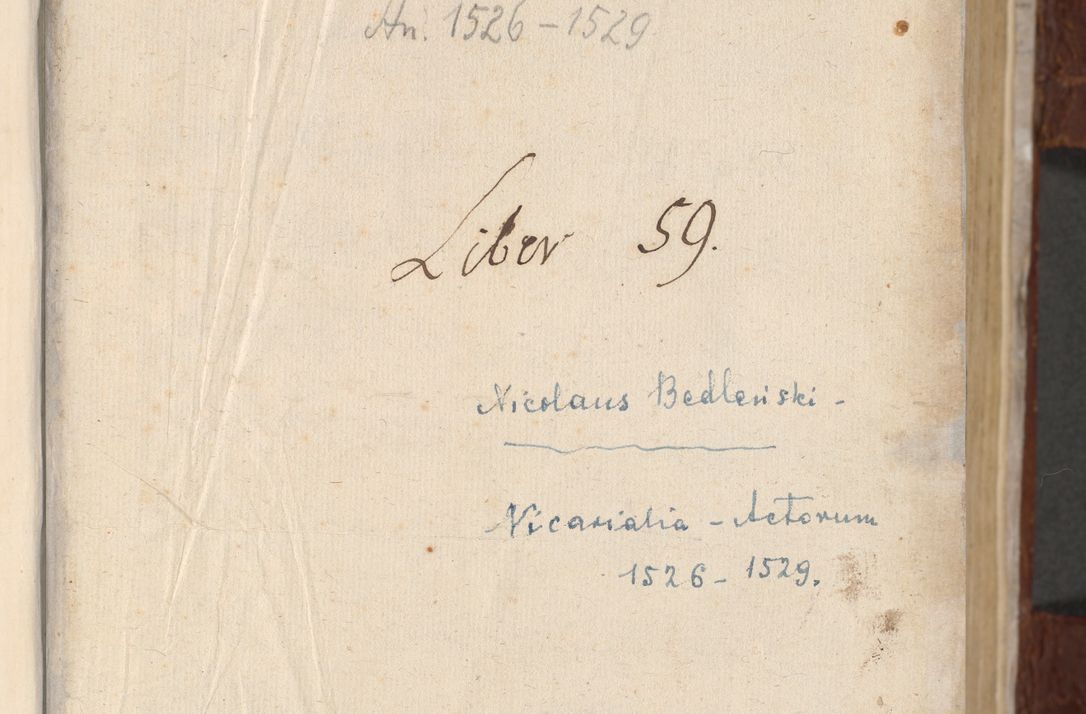 An. 1526 – 1529
Liber 59.
Nicolaus Bedleński -
Vicarialia - Actorum
1526 - 1529.